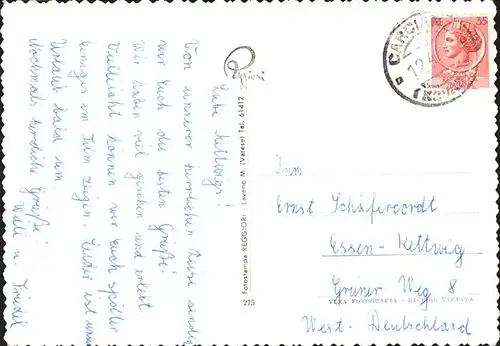 Liebe Kettwiger!
Von unserer herrlichen Reise senden
wir Euch die besten Grüße!
Wir haben viel gesehen und erlebt.
Vielleicht können wir Euch später
einiges im Film zeigen. Leider ist unser
Urlaub bald um.
Nochmals herzliche Grüße!
Willi u. Friedel
Reggiori
Fotostampa REGGIORI - Laveno M. (Varese) Tel. 61412
275
35
Ernst Schäfercordt
Essen-Kettwig
Grüner Weg 8
VERA FOTOGRAFIA - RIPROD. VIETATA
West-Deutschland